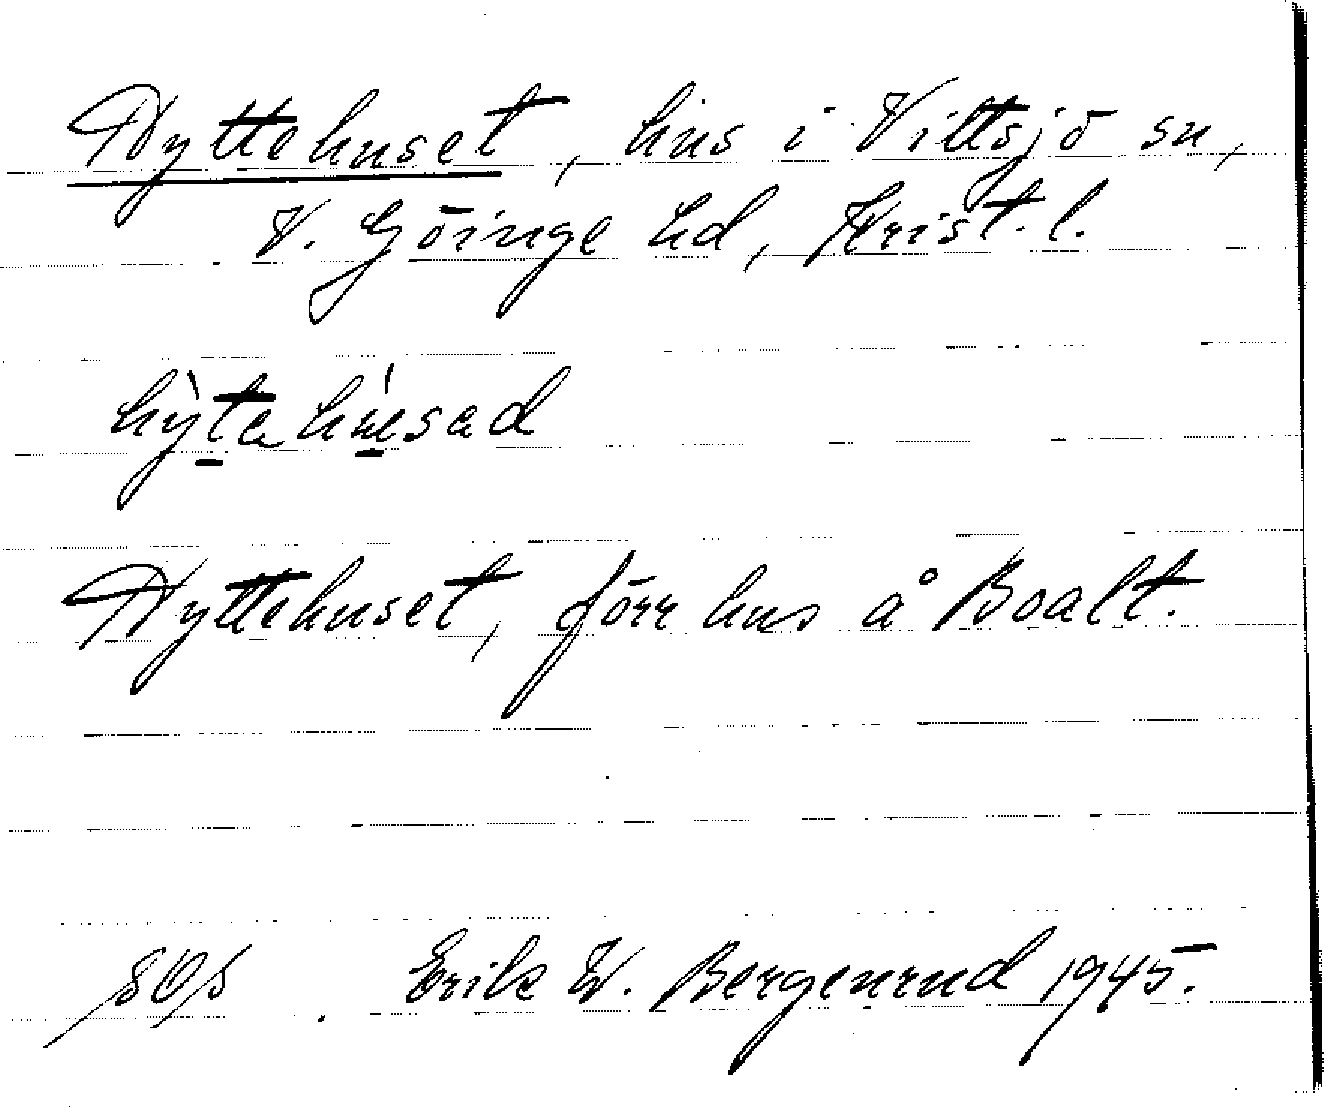 Hyttehuset, hus i Vittsjö sn,
V. Göinge hd, Krist. l.
hy̍tahu̍sad
Hyttehuset, förr hus å Boalt.
Erik W. Bergenrud 1945.